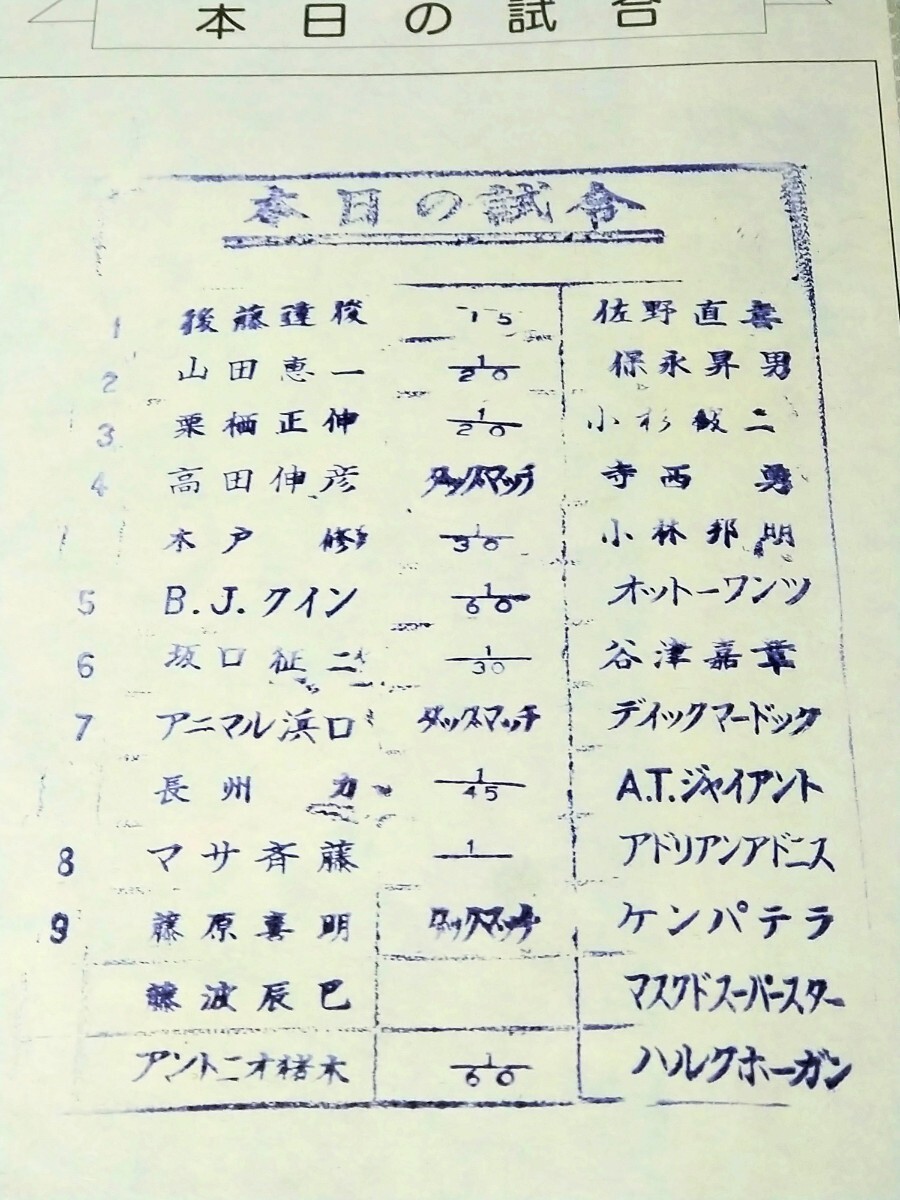 本日の試合
本日の試合
1 後藤達俊 15 佐野直喜
2 山田恵一 1/20 保永昇男
3 栗栖正伸 1/20 小杉俊二
4 高田伸彦 タッグマッチ 寺西勇
木戸修 1/30 小林邦明
5 B.J.クイン 1/60 オットーワンツ
6 坂口征二 1/30 谷津嘉章
7 アニマル浜口 タッグマッチ ディックマードック
長州力 1/45 A.T.ジャイアント
8 マサ斉藤 1 アドリアンアドニス
9 藤原喜明 タッグマッチ ケンパテラ
藤波辰巳 マスクドスーパースター
アントニオ猪木 1/60 ハルクホーガン